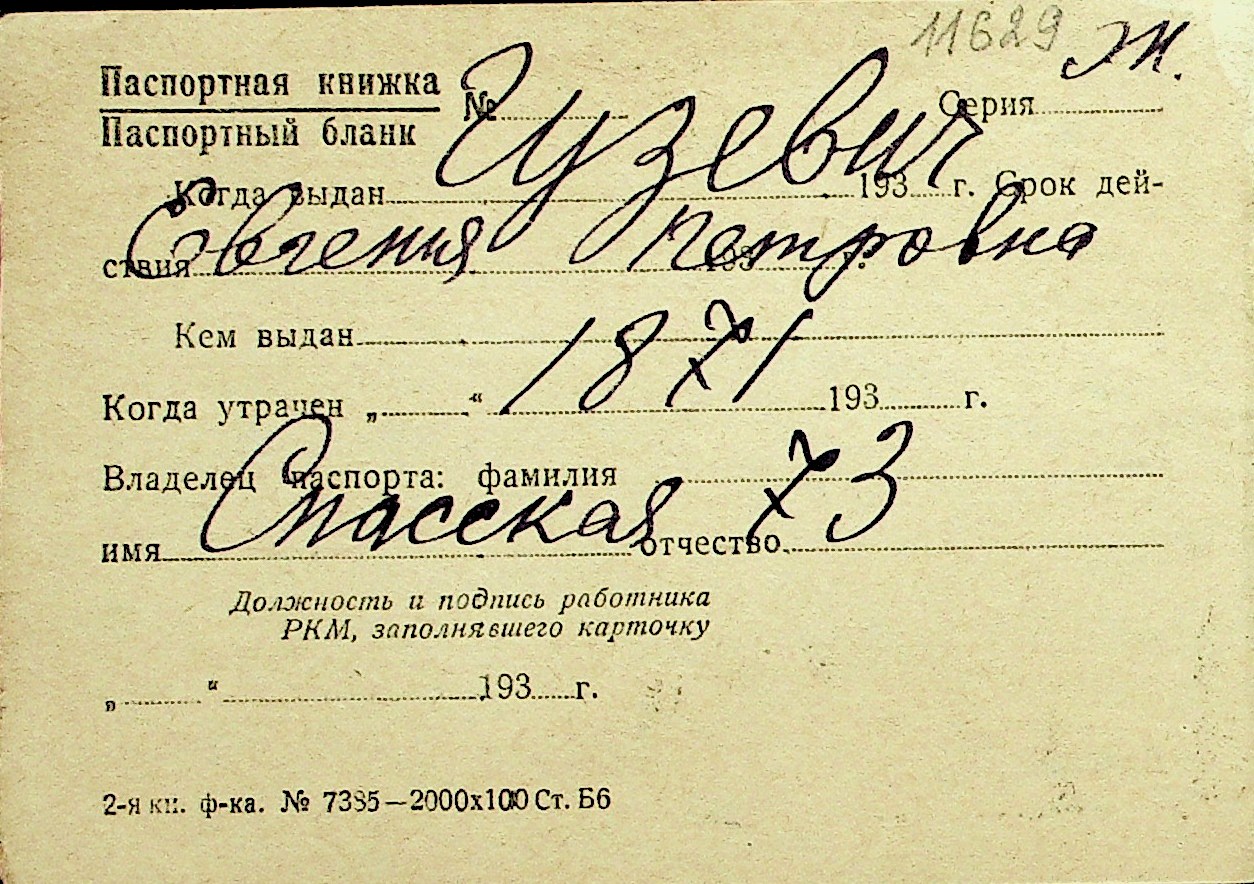 11629 Ж.
Паспортная книжка
Паспортный бланк
№ Серия
Гузевич
Когда выдан 193 г. Срок дей-
ствия 193 г.
Евгения Петровна
Кем выдан
1871
Когда утрачен „ “ 193 г.
Владелец паспорта: фамилия
Спасская 73
имя отчество
Должность и подпись работника
РКМ, заполнявшего карточку
„ “ 193 г.
2-я кн. ф-ка. № 7385—2000х100 Ст. Б6